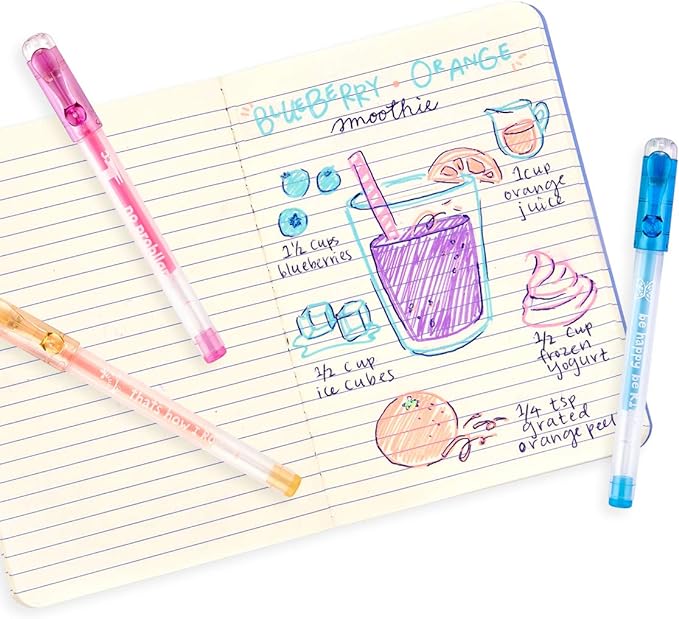 BLUEBERRY • ORANGE
smoothie
1 cup
orange
juice
1½ cups
blueberries
½ cup
frozen
yogurt
½ cup
ice cubes
¼ tsp
grated
orange peel
no probllama
be happy be
thats how i